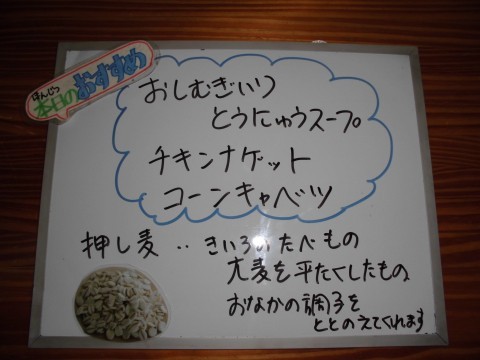 ほんじつ
本日のおすすめ
おしむぎいり
とうにゅうスープ
チキンナゲット
コーンキャベツ
押し麦‥きいろのたべもの
大麦を平たくしたもの
おなかの調子を
ととのえてくれます